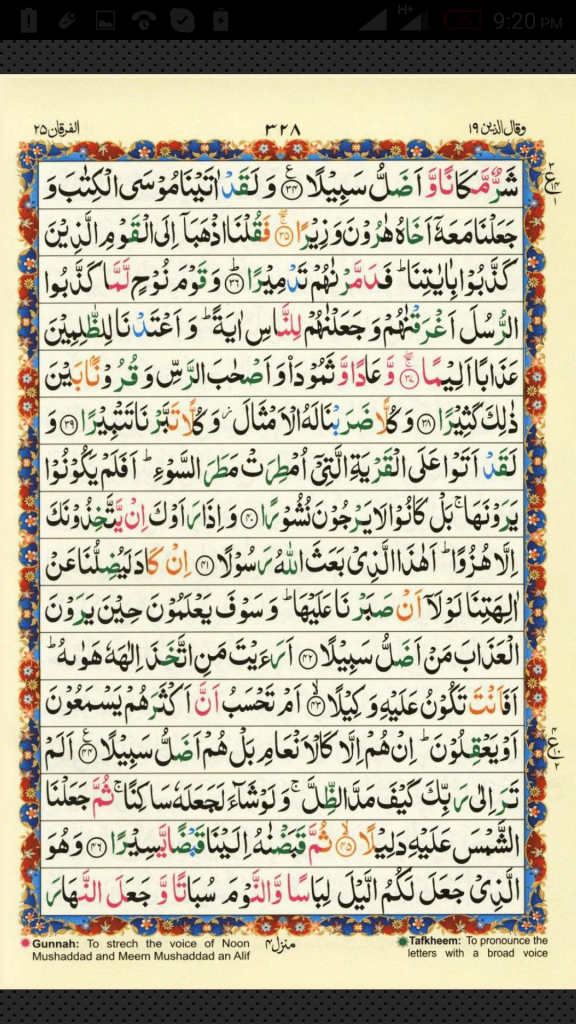 9:20 PM
وقال الذين ١٩
٣٢٨
الفرقان ٢٥
شَرٌّ مَّكَانًا وَّ اَضَلُّ سَبِيْلًا ﴿٣٤﴾ وَ لَقَدْ اٰتَيْنَا مُوْسَى الْكِتٰبَ وَ
جَعَلْنَا مَعَهٗۤ اَخَاهُ هٰرُوْنَ وَزِيْرًا ﴿٣٥﴾ فَقُلْنَا اذْهَبَاۤ اِلَى الْقَوْمِ الَّذِيْنَ
كَذَّبُوْا بِاٰيٰتِنَا ؕ فَدَمَّرْنٰهُمْ تَدْمِيْرًا ﴿٣٦﴾ وَ قَوْمَ نُوْحٍ لَّمَّا كَذَّبُوا
الرُّسُلَ اَغْرَقْنٰهُمْ وَ جَعَلْنٰهُمْ لِلنَّاسِ اٰيَةً ؕ وَ اَعْتَدْنَا لِلظّٰلِمِيْنَ
عَذَابًا اَلِيْمًا ﴿٣٧﴾ وَّ عَادًا وَّ ثَمُوْدَا۠ وَ اَصْحٰبَ الرَّسِّ وَ قُرُوْنًۢا بَيْنَ
ذٰلِكَ كَثِيْرًا ﴿٣٨﴾ وَ كُلًّا ضَرَبْنَا لَهُ الْاَمْثَالَ ؗ وَ كُلًّا تَبَّرْنَا تَتْبِيْرًا ﴿٣٩﴾ وَ
لَقَدْ اَتَوْا عَلَى الْقَرْيَةِ الَّتِيْۤ اُمْطِرَتْ مَطَرَ السَّوْءِ ؕ اَفَلَمْ يَكُوْنُوْا
يَرَوْنَهَا ۚ بَلْ كَانُوْا لَا يَرْجُوْنَ نُشُوْرًا ﴿٤٠﴾ وَ اِذَا رَاَوْكَ اِنْ يَّتَّخِذُوْنَكَ
اِلَّا هُزُوًا ؕ اَهٰذَا الَّذِيْ بَعَثَ اللّٰهُ رَسُوْلًا ﴿٤١﴾ اِنْ كَادَ لَيُضِلُّنَا عَنْ
اٰلِهَتِنَا لَوْلَاۤ اَنْ صَبَرْنَا عَلَيْهَا ؕ وَ سَوْفَ يَعْلَمُوْنَ حِيْنَ يَرَوْنَ
الْعَذَابَ مَنْ اَضَلُّ سَبِيْلًا ﴿٤٢﴾ اَرَءَيْتَ مَنِ اتَّخَذَ اِلٰهَهٗ هَوٰىهُ ؕ
اَفَاَنْتَ تَكُوْنُ عَلَيْهِ وَكِيْلًا ﴿٤٣﴾ اَمْ تَحْسَبُ اَنَّ اَكْثَرَهُمْ يَسْمَعُوْنَ
اَوْ يَعْقِلُوْنَ ؕ اِنْ هُمْ اِلَّا كَالْاَنْعَامِ بَلْ هُمْ اَضَلُّ سَبِيْلًا ﴿٤٤﴾ اَلَمْ
تَرَ اِلٰى رَبِّكَ كَيْفَ مَدَّ الظِّلَّ ۚ وَ لَوْ شَآءَ لَجَعَلَهٗ سَاكِنًا ۚ ثُمَّ جَعَلْنَا
الشَّمْسَ عَلَيْهِ دَلِيْلًا ﴿٤٥﴾ ثُمَّ قَبَضْنٰهُ اِلَيْنَا قَبْضًا يَّسِيْرًا ﴿٤٦﴾ وَ هُوَ
الَّذِيْ جَعَلَ لَكُمُ الَّيْلَ لِبَاسًا وَّ النَّوْمَ سُبَاتًا وَّ جَعَلَ النَّهَارَ
Gunnah: To strech the voice of Noon
Mushaddad and Meem Mushaddad an Alif
منزل ٤
Tafkheem: To pronounce the
letters with a broad voice